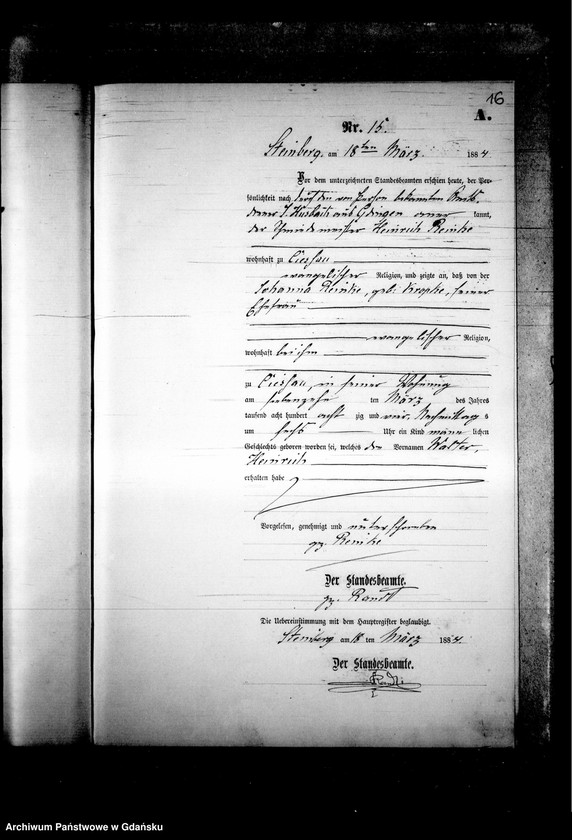 16
A.
Nr. 15.
Steinberg, am 18ten März 1884
Vor dem unterzeichneten Standesbeamten erschien heute, der Per-
sönlichkeit nach durch den von Person bekannten Amts-
diener J. aus Gdingen aner kannt,
der Schmiedemeister Heinrich Reinke
wohnhaft zu Ciessau
evangelischer Religion, und zeigte an, daß von der
Johanna Reinke, geb: Kropke, seiner
Ehefrau
evangelischer Religion,
wohnhaft bei ihm
zu Ciessau, in seiner Wohnung
am siebenzehn ten März des Jahres
tausend acht hundert acht zig und vier, Nachmittags
um sechs Uhr ein Kind männ lichen
Geschlechts geboren worden sei, welches den Vornamen Walter,
Heinrich
erhalten habe
Vorgelesen, genehmigt und unterschrieben
gez. Reinke
Der Standesbeamte.
gez. Randt
Die Uebereinstimmung mit dem Hauptregister beglaubigt.
Steinberg am 18 ten März 1884.
Der Standesbeamte.
Randt
Archiwum Państwowe w Gdańsku